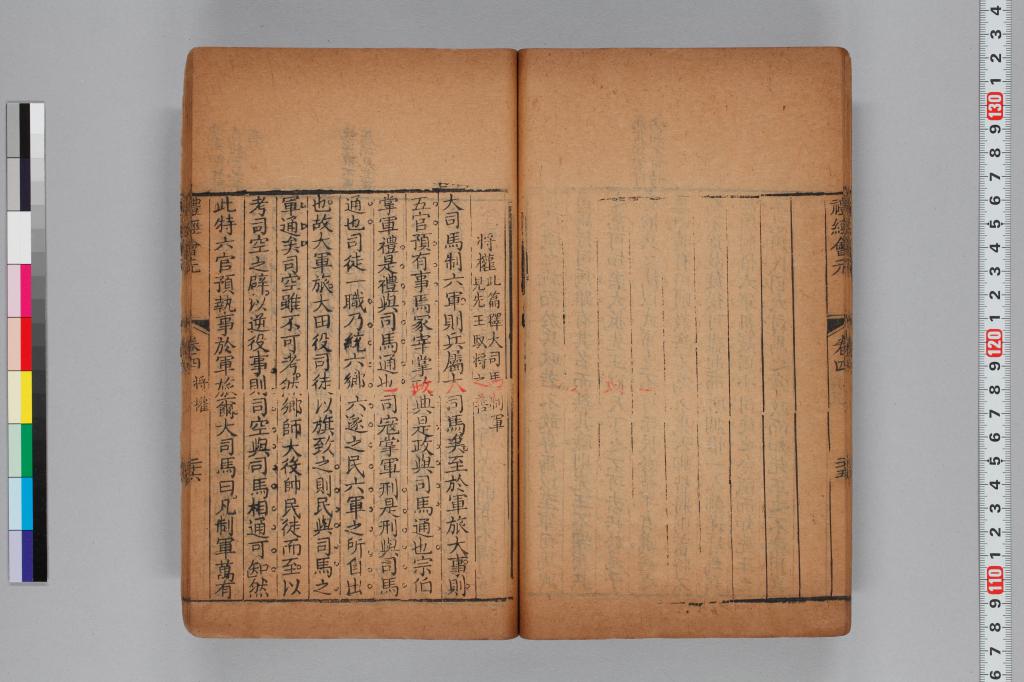 禮經會元 卷四 二十五
將權
此篇釋大司馬制軍
見先王取將之善
大司馬制六軍則兵屬大司馬矣至於軍旅大事則
五官預有事焉冢宰掌政典是政與司馬通也宗伯
掌軍禮是禮與司馬通也司寇掌軍刑是刑與司馬
通也司徒一職乃統六鄉六遂之民六軍之所自出
也故大軍旅大田役司徒以旗致之則民與司馬之
軍通矣司空雖不可考然鄉師大役帥民徒而至以
考司空之辟以逆役事則司空與司馬相通可知然
此特六官預執事於軍旅爾大司馬曰凡制軍萬有
禮經會元 卷四 將權 二十六